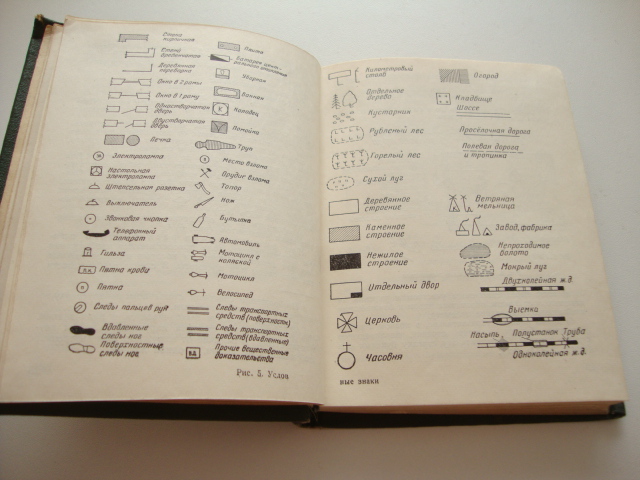 Стена
кирпичная
Стена
бревенчатая
Деревянная
перегородка
Окно в 2 рамы
Окно в 1 раму
Одностворчатая
дверь
Двустворчатая
дверь
Печка
Электролампа
Настольная
электролампа
Штепсельная розетка
Выключатель
Звонковая кнопка
Телефонный
аппарат
Гильза
Пятна крови
Пятна
Следы пальцев рук
Вдавленные
следы ног
Поверхностные
следы ног
Плита
Батарея
Уборная
Ванная
Колодец
Помойка
Труп
Место взлома
Орудие взлома
Топор
Нож
Бутылка
Автомобиль
Мотоцикл с
коляской
Мотоцикл
Велосипед
Следы транспортных
средств (поверхностн)
Следы транспортных
средств (вдавленные)
Прочие вещественные
доказательства
Рис. 5. Услов
Километровый
столб
Отдельное
дерево
Кустарник
Рубленый лес
Горелый лес
Сухой луг
Деревянное
строение
Каменное
строение
Нежилое
строение
Отдельный двор
Церковь
Часовня
Огород
Кладбище
Шоссе
Просёлочная дорога
Полевая дорога
и тропинка
Ветряная
мельница
Завод, фабрика
Непроходимое
болото
Мокрый луг
Двухколейная ж.д.
Выемка
Насыпь Полустанок Труба
Одноколейная ж.д.
ные знаки